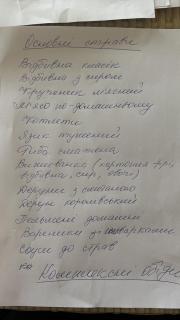 Основні страви
Відбивна класик
Відбивна з сиром
Крученик м'ясний
М'ясо по-домашньому
Котлети
Язик тушений
Риба смажена
(картопля фрі,
відбивна, сир, овочі)
Деруни з сметаною
Дерун королівський
Пельмені домашні
Вареники з шкварками
Соуси до страв
Комплексні обіди